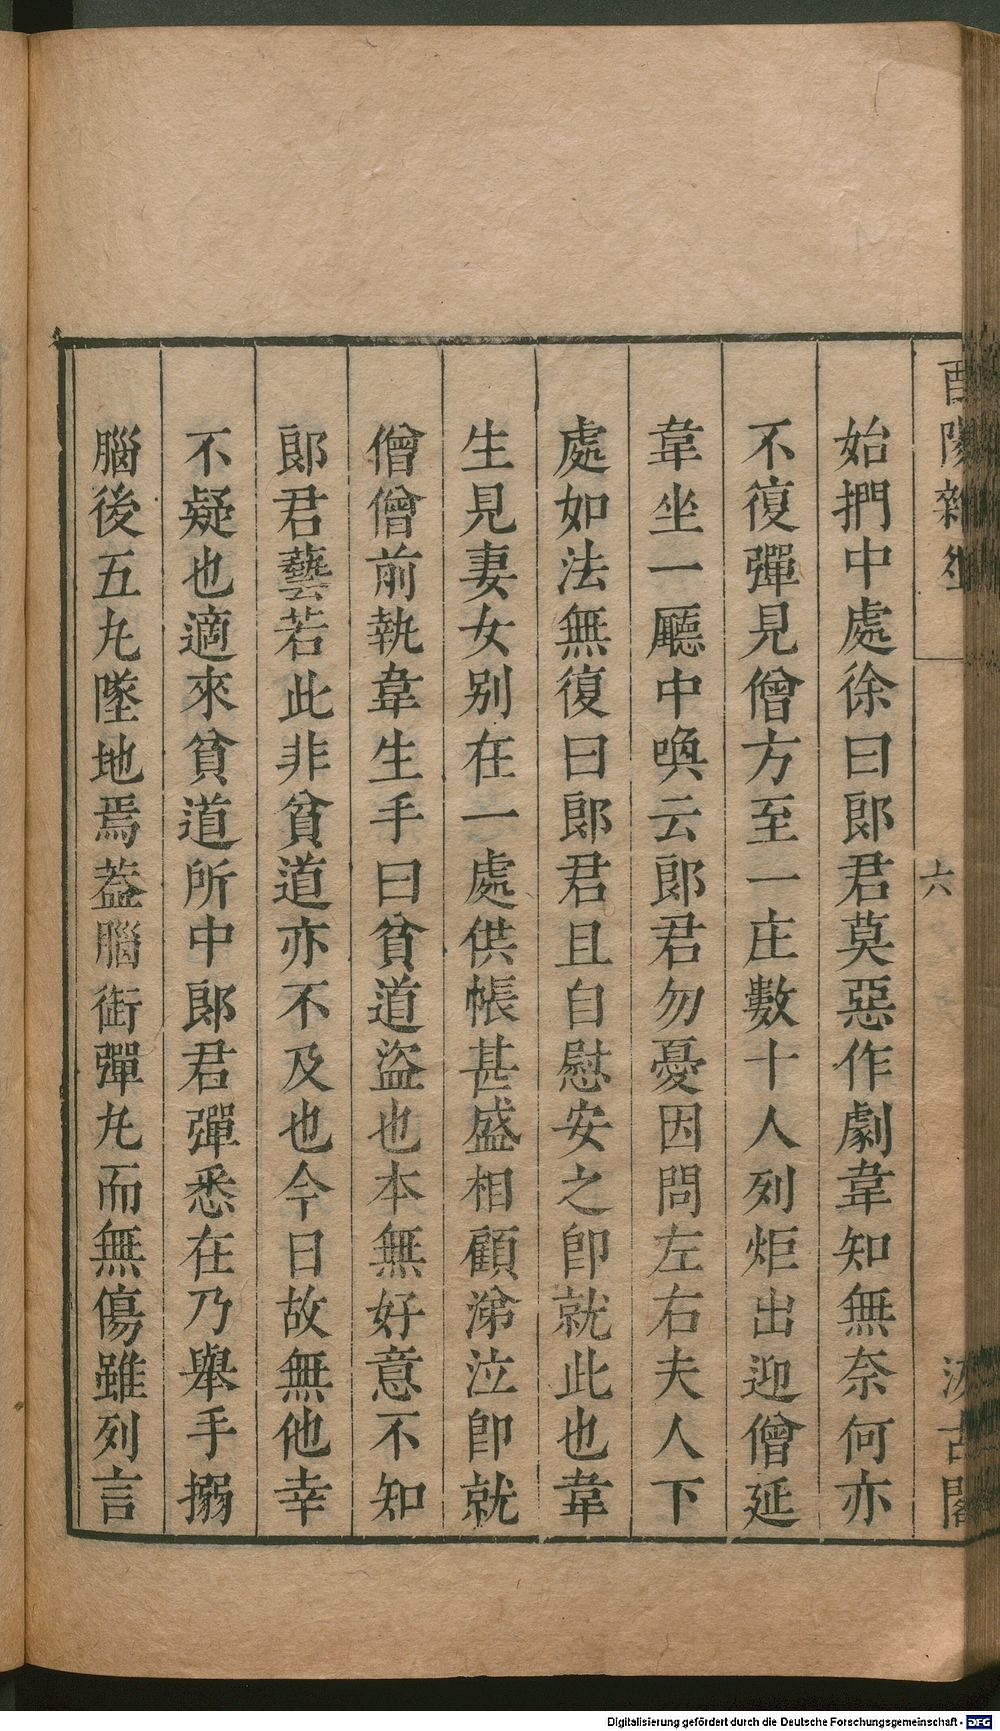 酉陽雜
六
汲古閣
始捫中處徐曰郎君莫惡作劇韋知無奈何亦
不復彈見僧方至一庄數十人列炬出迎僧延
韋坐一廳中喚云郎君勿憂因問左右夫人下
處如法無復曰郎君且自慰安之卽就此也韋
生見妻女别在一處供帳甚盛相顧涕泣卽就
僧僧前執韋生手曰貧道盜也本無好意不知
郎君藝若此非貧道亦不及也今日故無他幸
不疑也適來貧道所中郎君彈悉在乃舉手搦
腦後五丸墜地焉葢腦衘彈丸而無傷雖列言
Digitalisierung gefördert durch die Deutsche Forschungsgemeinschaft - DFG